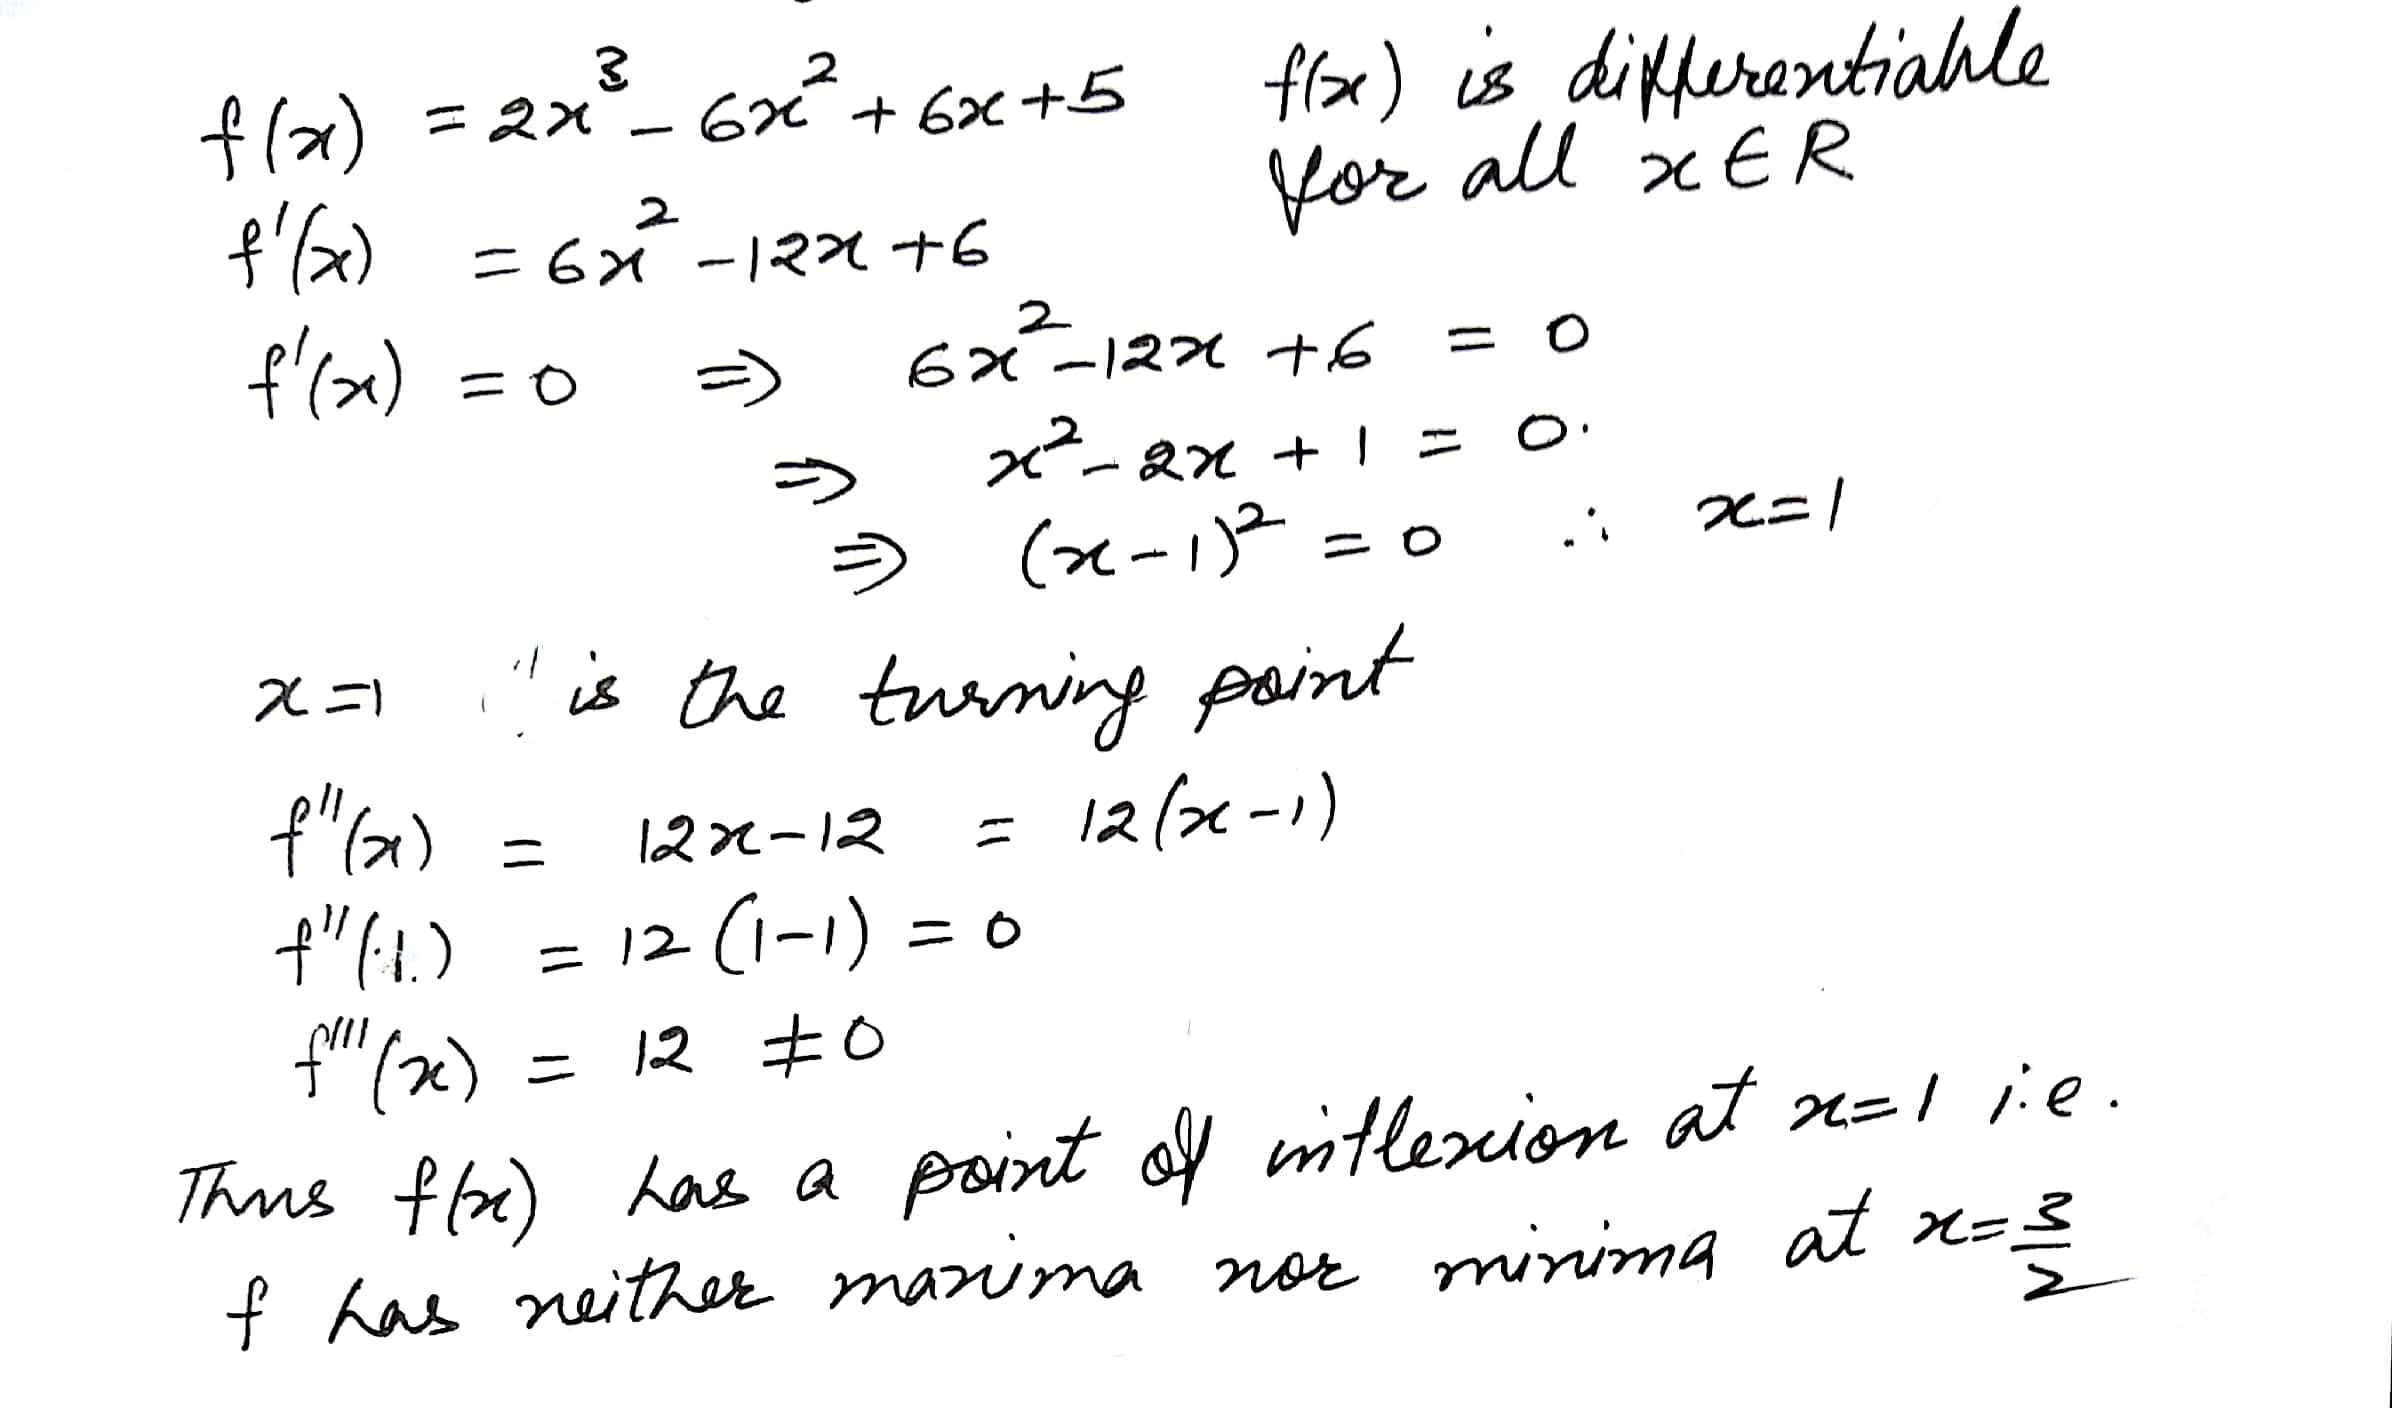 f(x) = 2x³ - 6x² + 6x + 5 f(x) is differentiable
for all x ∈ R
f'(x) = 6x² - 12x + 6
f'(x) = 0 ⇒ 6x² - 12x + 6 = 0
⇒ x² - 2x + 1 = 0.
⇒ (x - 1)² = 0 ∴ x = 1
x = 1 is the turning point
f''(x) = 12x - 12 = 12(x - 1)
f''(1) = 12(1 - 1) = 0
f'''(x) = 12 ≠ 0
Thus f(x) has a point of inflexion at x = 1 i.e.
f has neither maxima nor minima at x = 3/2